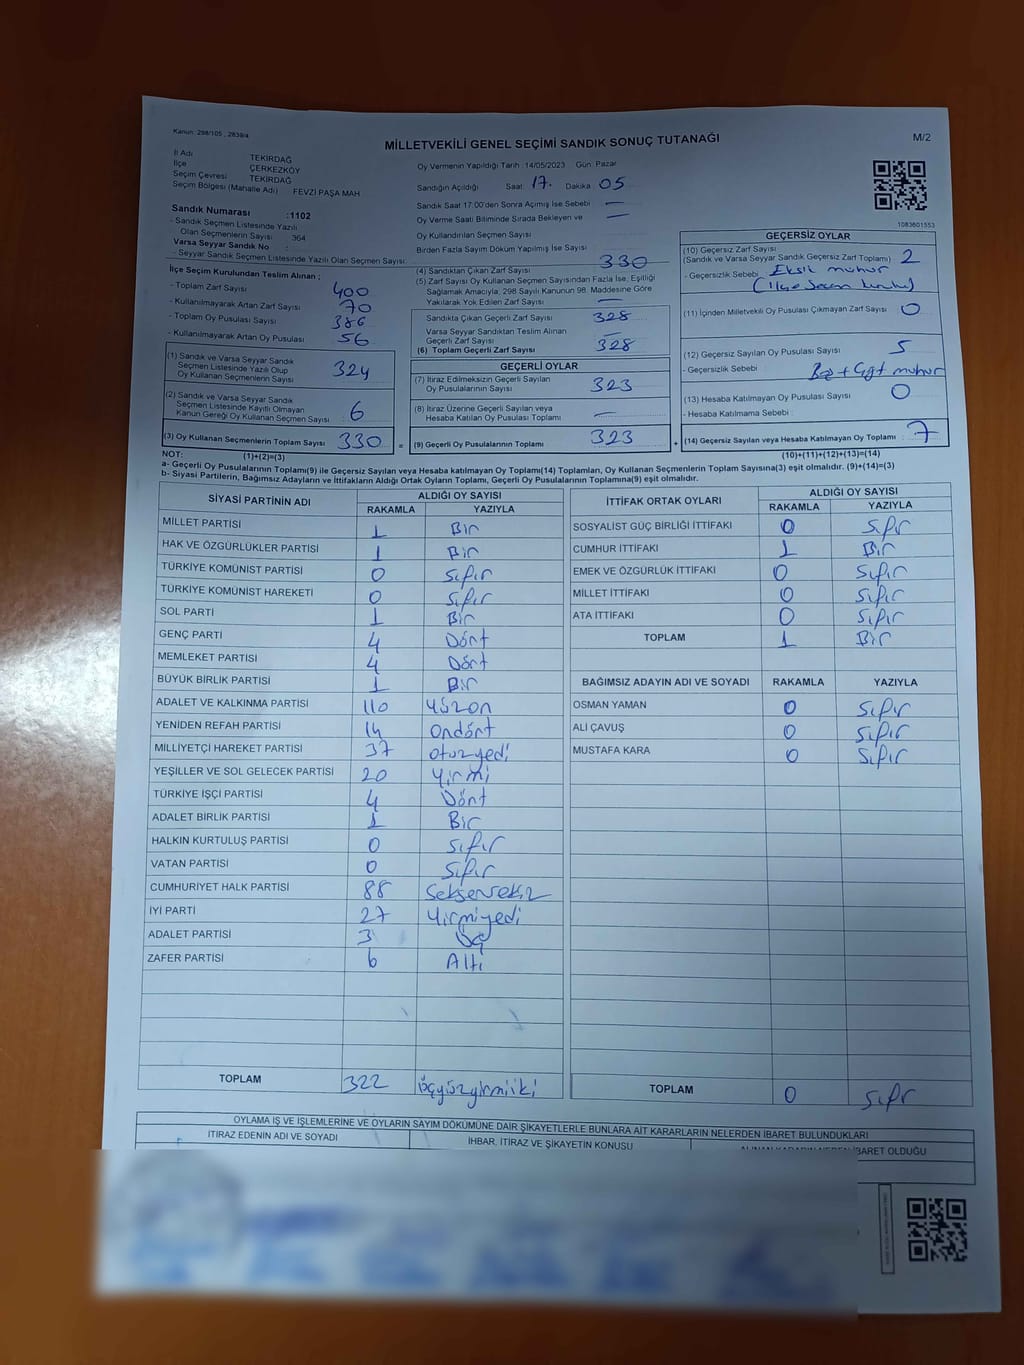 Kanun: 298/105 , 2839/4
MİLLETVEKİLİ GENEL SEÇİMİ SANDIK SONUÇ TUTANAĞI
M/2
İl Adı TEKİRDAĞ
İlçe ÇERKEZKÖY
Seçim Çevresi TEKİRDAĞ
Seçim Bölgesi (Mahalle Adı) FEVZİ PAŞA MAH
Sandık Numarası :1102
- Sandık Seçmen Listesinde Yazılı
Olan Seçmenlerin Sayısı 364
Varsa Seyyar Sandık No :
- Seyyar Sandık Seçmen Listesinde Yazılı Olan Seçmen Sayısı:
Oy Vermenin Yapıldığı Tarih :14/05/2023 Gün: Pazar
Sandığın Açıldığı Saat 17. Dakika 05
Sandık Saat 17:00'den Sonra Açımış İse Sebebi —
Oy Verme Saati Bitiminde Sırada Bekleyen ve —
Oy Kullandırılan Seçmen Sayısı
Birden Fazla Sayım Döküm Yapılmış İse Sayısı
1083601553
İlçe Seçim Kurulundan Teslim Alınan ;
- Toplam Zarf Sayısı 400
- Kullanılmayarak Artan Zarf Sayısı 70
- Toplam Oy Pusulası Sayısı 386
- Kullanılmayarak Artan Oy Pusulası 56
(1) Sandık ve Varsa Seyyar Sandık
Seçmen Listesinde Yazılı Olup
Oy Kullanan Seçmenlerin Sayısı 324
(2) Sandık ve Varsa Seyyar Sandık
Seçmen Listesinde Kayıtlı Olmayan
Kanun Gereği Oy Kullanan Seçmen Sayısı 6
(3) Oy Kullanan Seçmenlerin Toplam Sayısı 330 =
(4) Sandıktan Çıkan Zarf Sayısı 330
(5) Zarf Sayısı Oy Kullanan Seçmen Sayısından Fazla İse, Eşitliği
Sağlamak Amacıyla, 298 Sayılı Kanunun 98. Maddesine Göre
Yakılarak Yok Edilen Zarf Sayısı —
Sandıkta Çıkan Geçerli Zarf Sayısı 328
Varsa Seyyar Sandıktan Teslim Alınan
Geçerli Zarf Sayısı —
(6) Toplam Geçerli Zarf Sayısı 328
GEÇERLİ OYLAR
(7) İtiraz Edilmeksizin Geçerli Sayılan
Oy Pusulalarının Sayısı 323
(8) İtiraz Üzerine Geçerli Sayılan veya
Hesaba Katılan Oy Pusulası Toplamı —
(9) Geçerli Oy Pusulalarının Toplamı 323 +
GEÇERSİZ OYLAR
(10) Geçersiz Zarf Sayısı
(Sandık ve Varsa Seyyar Sandık Geçersiz Zarf Toplamı) 2
- Geçersizlik Sebebi Eksik mühür
(İlçe Seçim kurulu)
(11) İçinden Milletvekili Oy Pusulası Çıkmayan Zarf Sayısı 0
(12) Geçersiz Sayılan Oy Pusulası Sayısı 5
- Geçersizlik Sebebi Boş + Çift mühür
(13) Hesaba Katılmayan Oy Pusulası Sayısı 0
- Hesaba Katılmama Sebebi :
(14) Geçersiz Sayılan veya Hesaba Katılmayan Oy Toplamı 7
NOT: (1)+(2)=(3)
(10)+(11)+(12)+(13)=(14)
a- Geçerli Oy Pusulalarının Toplamı(9) ile Geçersiz Sayılan veya Hesaba katılmayan Oy Toplamı(14) Toplamları, Oy Kullanan Seçmenlerin Toplam Sayısına(3) eşit olmalıdır. (9)+(14)=(3)
b- Siyasi Partilerin, Bağımsız Adayların ve İttifakların Aldığı Ortak Oyların Toplamı, Geçerli Oy Pusulalarının Toplamına(9) eşit olmalıdır.
SİYASİ PARTİNİN ADI ALDIĞI OY SAYISI
RAKAMLA YAZIYLA
MİLLET PARTİSİ 1 Bir
HAK VE ÖZGÜRLÜKLER PARTİSİ 1 Bir
TÜRKİYE KOMÜNİST PARTİSİ 0 Sıfır
TÜRKİYE KOMÜNİST HAREKETİ 0 Sıfır
SOL PARTİ 1 Bir
GENÇ PARTİ 4 Dört
MEMLEKET PARTİSİ 4 Dört
BÜYÜK BİRLİK PARTİSİ 1 Bir
ADALET VE KALKINMA PARTİSİ 110 Yüzon
YENİDEN REFAH PARTİSİ 14 Ondört
MİLLİYETÇİ HAREKET PARTİSİ 37 otuzyedi
YEŞİLLER VE SOL GELECEK PARTİSİ 20 Yirmi
TÜRKİYE İŞÇİ PARTİSİ 4 Dört
ADALET BİRLİK PARTİSİ 1 Bir
HALKIN KURTULUŞ PARTİSİ 0 Sıfır
VATAN PARTİSİ 0 Sıfır
CUMHURİYET HALK PARTİSİ 88 Seksensekiz
İYİ PARTİ 27 Yirmiyedi
ADALET PARTİSİ 3 Üç
ZAFER PARTİSİ 6 Altı
TOPLAM 322 üçyüzyirmiiki
İTTİFAK ORTAK OYLARI ALDIĞI OY SAYISI
RAKAMLA YAZIYLA
SOSYALİST GÜÇ BİRLİĞİ İTTİFAKI 0 Sıfır
CUMHUR İTTİFAKI 1 Bir
EMEK VE ÖZGÜRLÜK İTTİFAKI 0 Sıfır
MİLLET İTTİFAKI 0 Sıfır
ATA İTTİFAKI 0 Sıfır
TOPLAM 1 Bir
BAĞIMSIZ ADAYIN ADI VE SOYADI RAKAMLA YAZIYLA
OSMAN YAMAN 0 Sıfır
ALİ ÇAVUŞ 0 Sıfır
MUSTAFA KARA 0 Sıfır
TOPLAM 0 Sıfır
OYLAMA İŞ VE İŞLEMLERİNE VE OYLARIN SAYIM DÖKÜMÜNE DAİR ŞİKAYETLERLE BUNLARA AİT KARARLARIN NELERDEN İBARET BULUNDUKLARI
İTİRAZ EDENİN ADI VE SOYADI İHBAR, İTİRAZ VE ŞİKAYETİN KONUSU ALINAN KARARIN NEDEN İBARET OLDUĞU